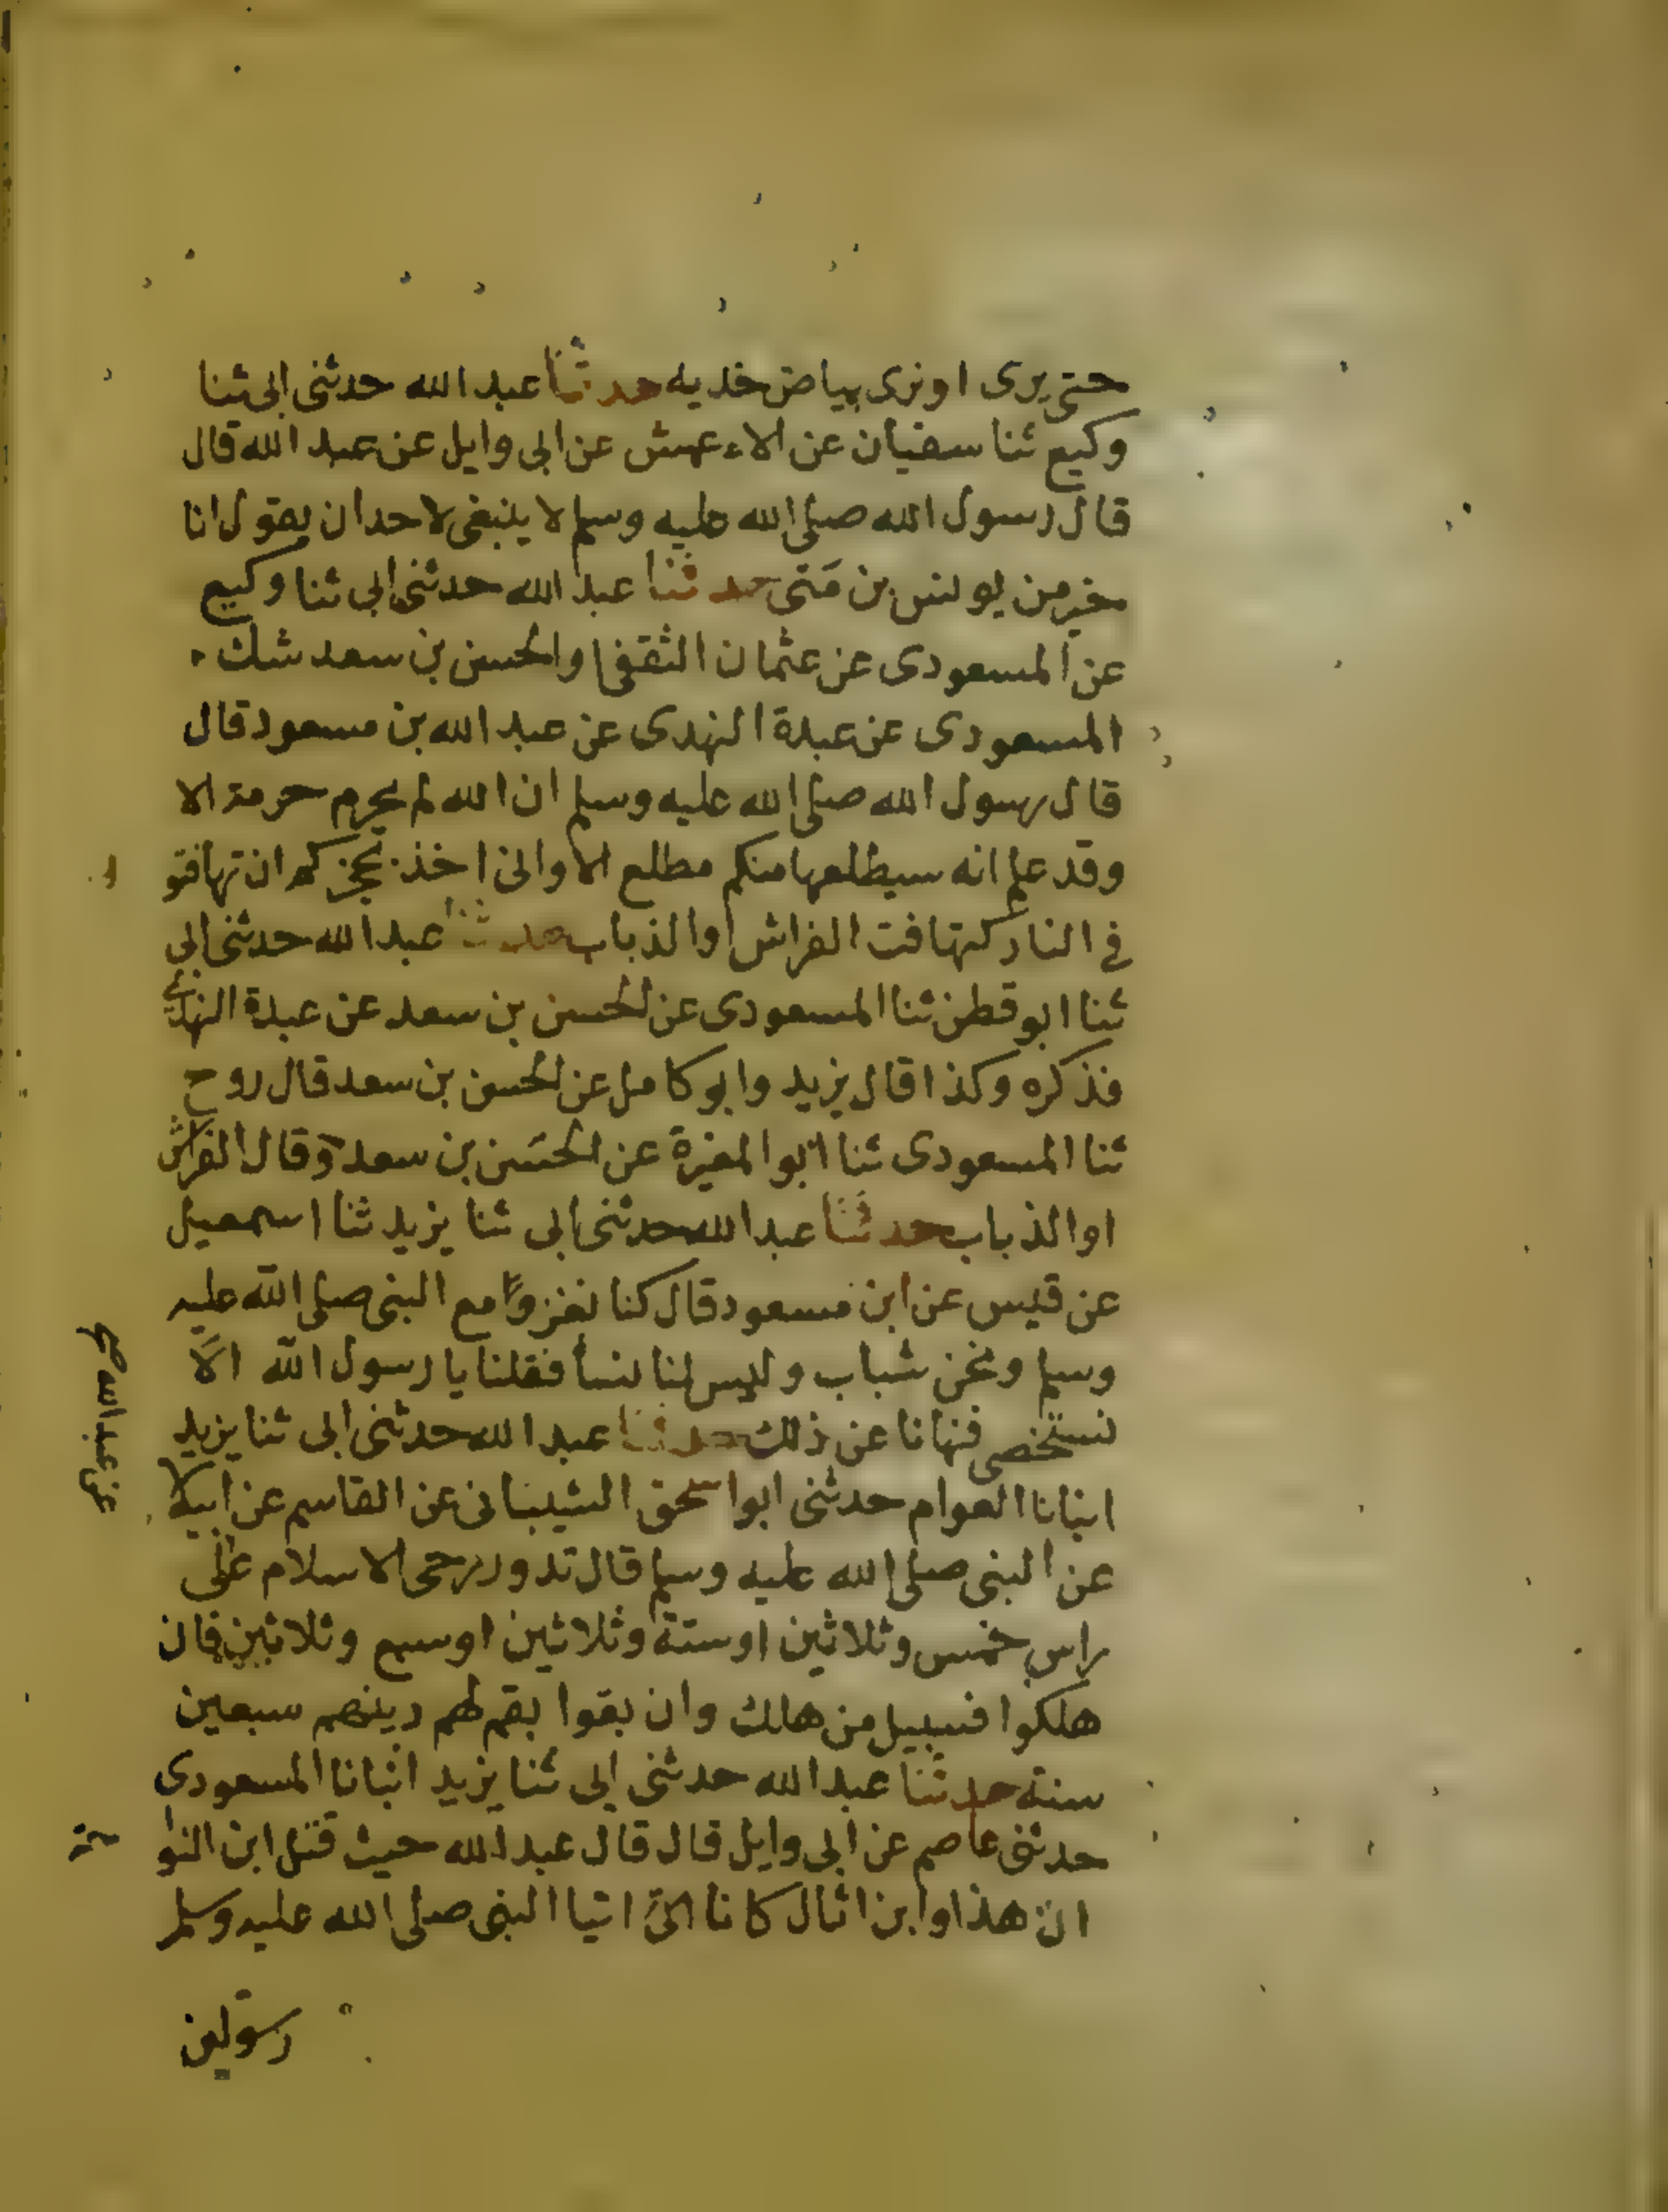 حتى يرى او نرى بياض خديه حدثنا عبد الله حدثنى ابى ثنا
وكيع ثنا سفيان عن الاعمش عن ابى وايل عن عبد الله قال
قال رسول الله صلى الله عليه وسلم لا ينبغى لاحد ان يقول انا
خير من يونس بن مَتى حدثنا عبد الله حدثنى ابى ثنا وكيع
عن المسعودى عن عثمان الثقفى او الحسن بن سعد شك
المسعودى عن عبدة النهدى عن عبد الله بن مسعود قال
قال رسول الله صلى الله عليه وسلم ان الله لم يحرم حرمة الا
وقد علم انه سيطلعها منكم مطلع الا وانى اخذ بحجزكم ان تهافتو
فى النار كتهافت الفراش او الذباب حدثنا عبد الله حدثنى ابى
ثنا ابو قطن ثنا المسعودى عن الحسن بن سعد عن عبدة النهدى
فذكره وكذا قال يزيد وابو كامل عن الحسن بن سعد قال روح
ثنا المسعودى ثنا ابو المغيرة عن الحسن بن سعد وقال الفراش
او الذباب حدثنا عبد الله حدثنى ابى ثنا يزيد ثنا اسمعيل
عن قيس عن ابن مسعود قال كنا نغزوا مع النبى صلى الله عليه
وسلم ونحن شباب وليس لنا نسأ فقلنا يا رسول الله الا
نستخصى فنهانا عن ذلك حدثنا عبد الله حدثنى ابى ثنا يزيد
انبانا العوام حدثنى ابو اسحق الشيبانى عن القاسم عن ابيه
عن عبد الله صح
عن النبى صلى الله عليه وسلم قال تدور رحى الاسلام على
راس خمس وثلاثين او ستة وثلاثين او سبع وثلاثين فان
هلكوا فسبيل من هالك وان بقوا بقم لهم دينهم سبعين
سنة حدثنا عبد الله حدثنى ابى ثنا يزيد انبانا المسعودى
حدثنى عاصم عن ابى وايل قال قال عبد الله حيث قتل ابن النوا
ان هذا وابن اثال كانا اتيا النبى صلى الله عليه وسلم
رسولين